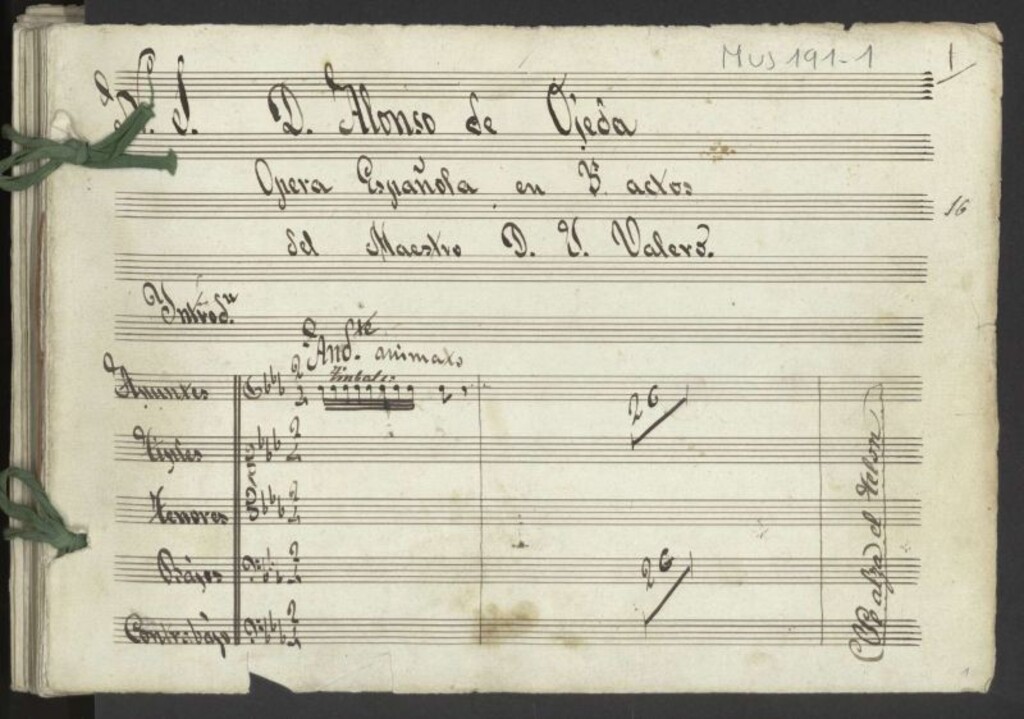 Mus 191-1
1
N. 1. D. Alonso de Ojeda
Opera Española en 3 actos
16
del Maestro D. V. Valero.
Introd.n
And.te animato
Timbales
Apuntes
2
26
Tiples
Tenores
Bajos
26
Contrabajo
Se alza el telon
1